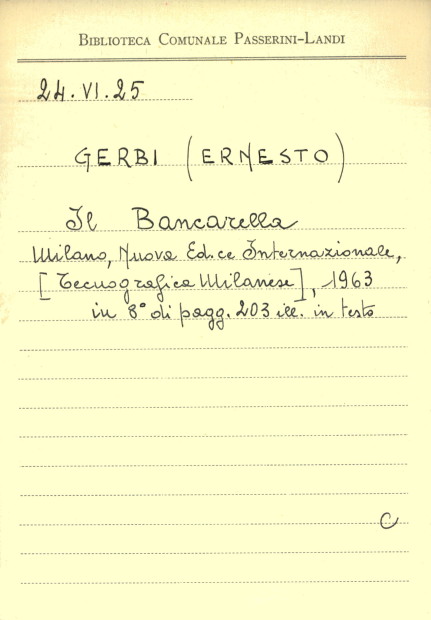 BIBLIOTECA COMUNALE PASSERINI-LANDI
24.VI.25
GERBI (ERNESTO)
Il Bancarella
Milano, Nuova Ed.ce Internazionale,
[Tecnografica Milanese], 1963
in 8° di pagg. 203 ill. in testo
C